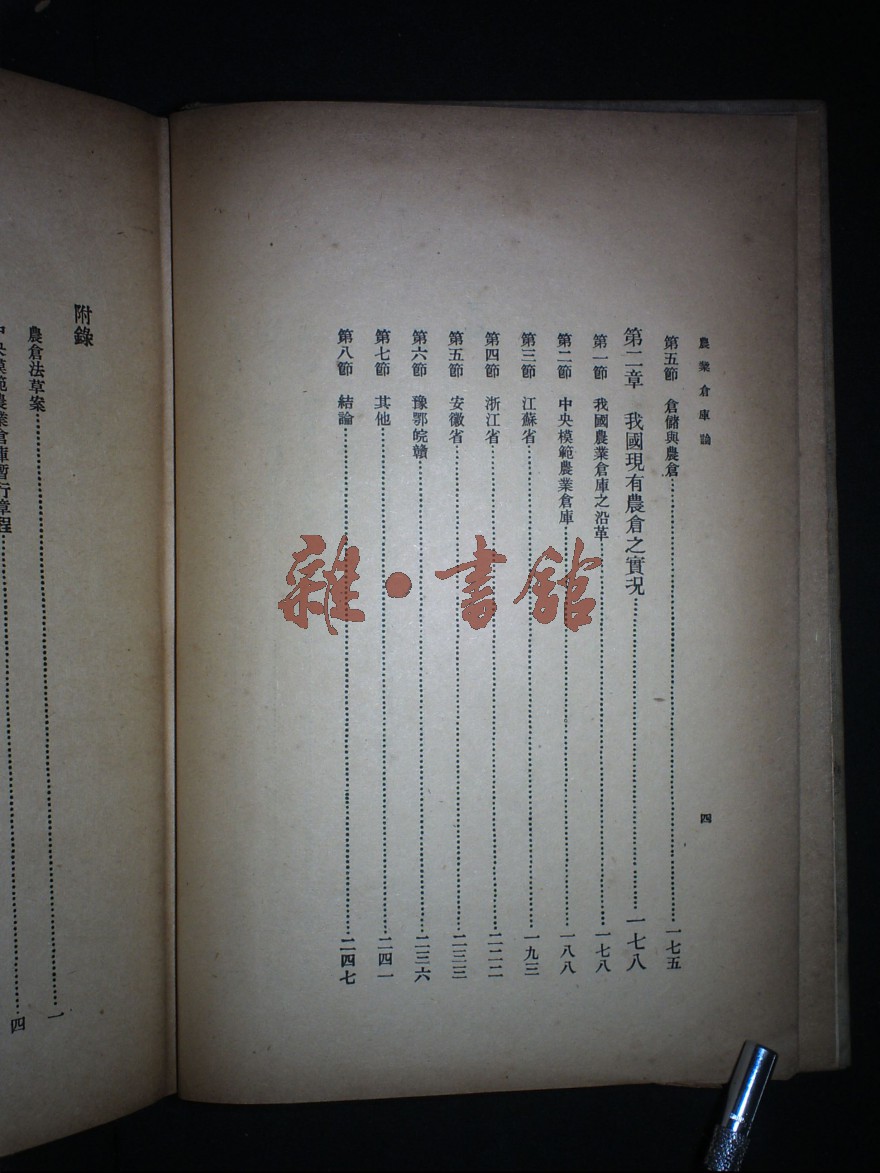 農業倉庫論
四
第五節 倉儲與農倉……一七五
第二章 我國現有農倉之實況……一七八
第一節 我國農業倉庫之沿革……一七八
第二節 中央模範農業倉庫……一八八
第三節 江蘇省……一九三
第四節 浙江省……二二二
第五節 安徽省……二三三
第六節 豫鄂皖贛……二三六
第七節 其他……二四一
第八節 結論……二四七
附錄
農倉法草案……一
中央模範農業倉庫暫行章程……四
雜·書館